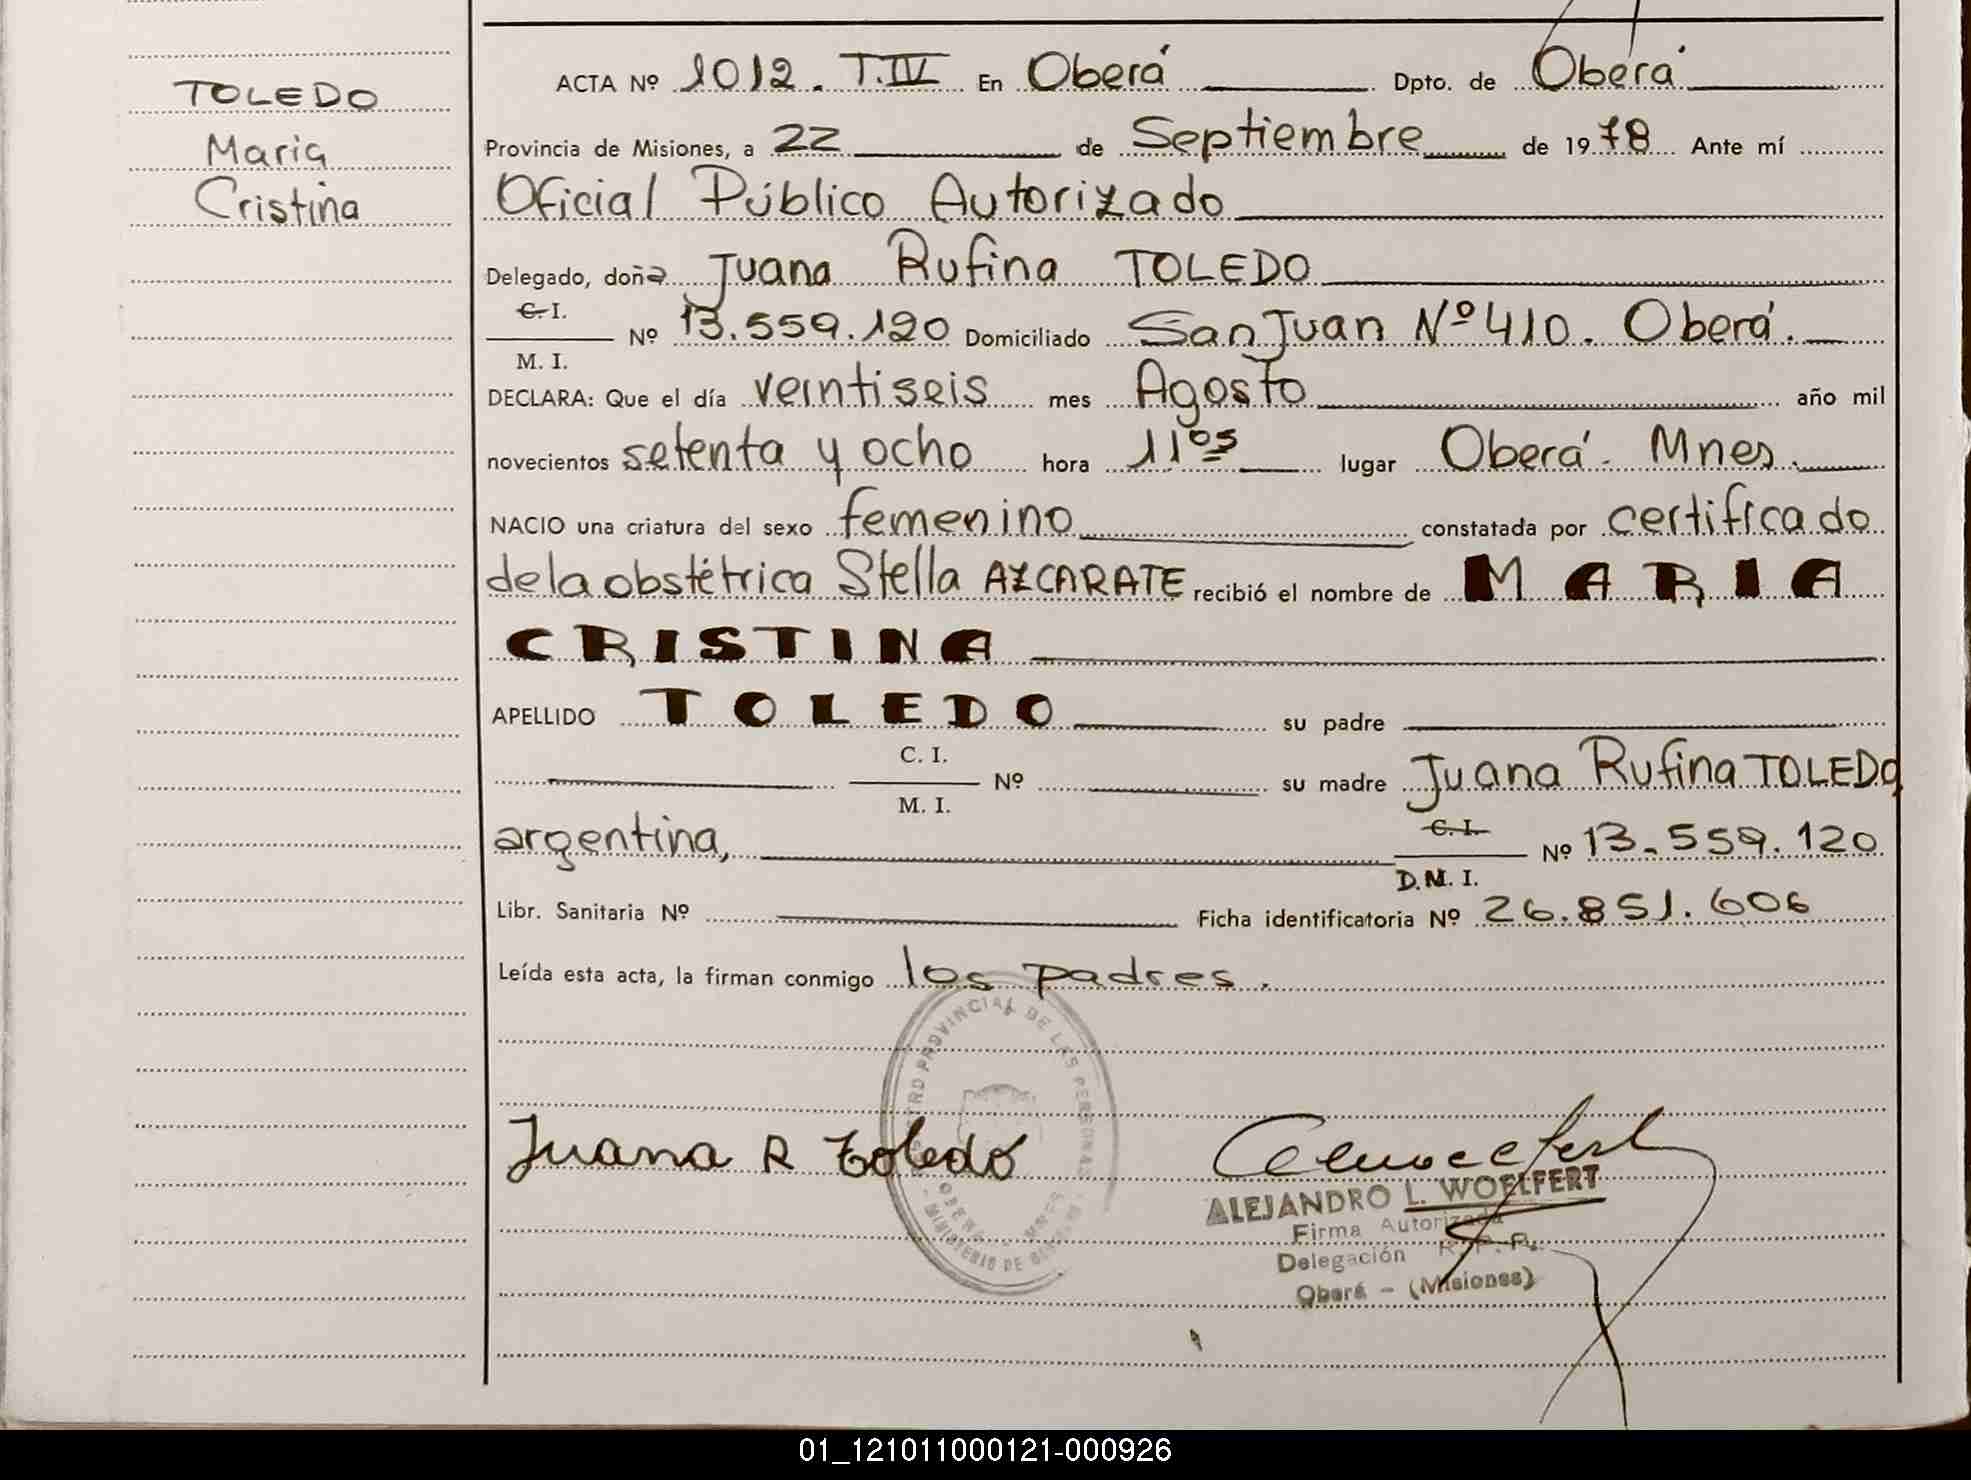 TOLEDO
Maria
Cristina
ACTA Nº 1012. T.IV En Oberá Dpto. de Oberá
Provincia de Misiones, a 22 de Septiembre de 1978 Ante mí
Oficial Público Autorizado
Delegado, doña Juana Rufina TOLEDO
C. I.
M. I.
Nº 13.559.120 Domiciliado San Juan Nº 410. Oberá.
DECLARA: Que el día veintiseis mes Agosto año mil
novecientos setenta y ocho hora 11os lugar Oberá. Mnes.
NACIO una criatura del sexo femenino constatada por certificado
de la obstétrica Stella AZCARATE recibió el nombre de MARIA
CRISTINA
APELLIDO TOLEDO su padre
C. I.
M. I.
Nº su madre Juana Rufina TOLEDO,
argentina, C. I.
D.M. I.
Nº 13.559.120
Libr. Sanitaria Nº Ficha identificatoria Nº 26.851.606
Leída esta acta, la firman conmigo los padres.
REGISTRO PROVINCIAL DE LAS PERSONAS
OBERÁ - MNES
MINISTERIO DE
Juana R Toledo
ALEJANDRO L. WOELFERT
Firma Autorizada
Delegación R. P. P.
Oberá - (Misiones)
01_121011000121-000926